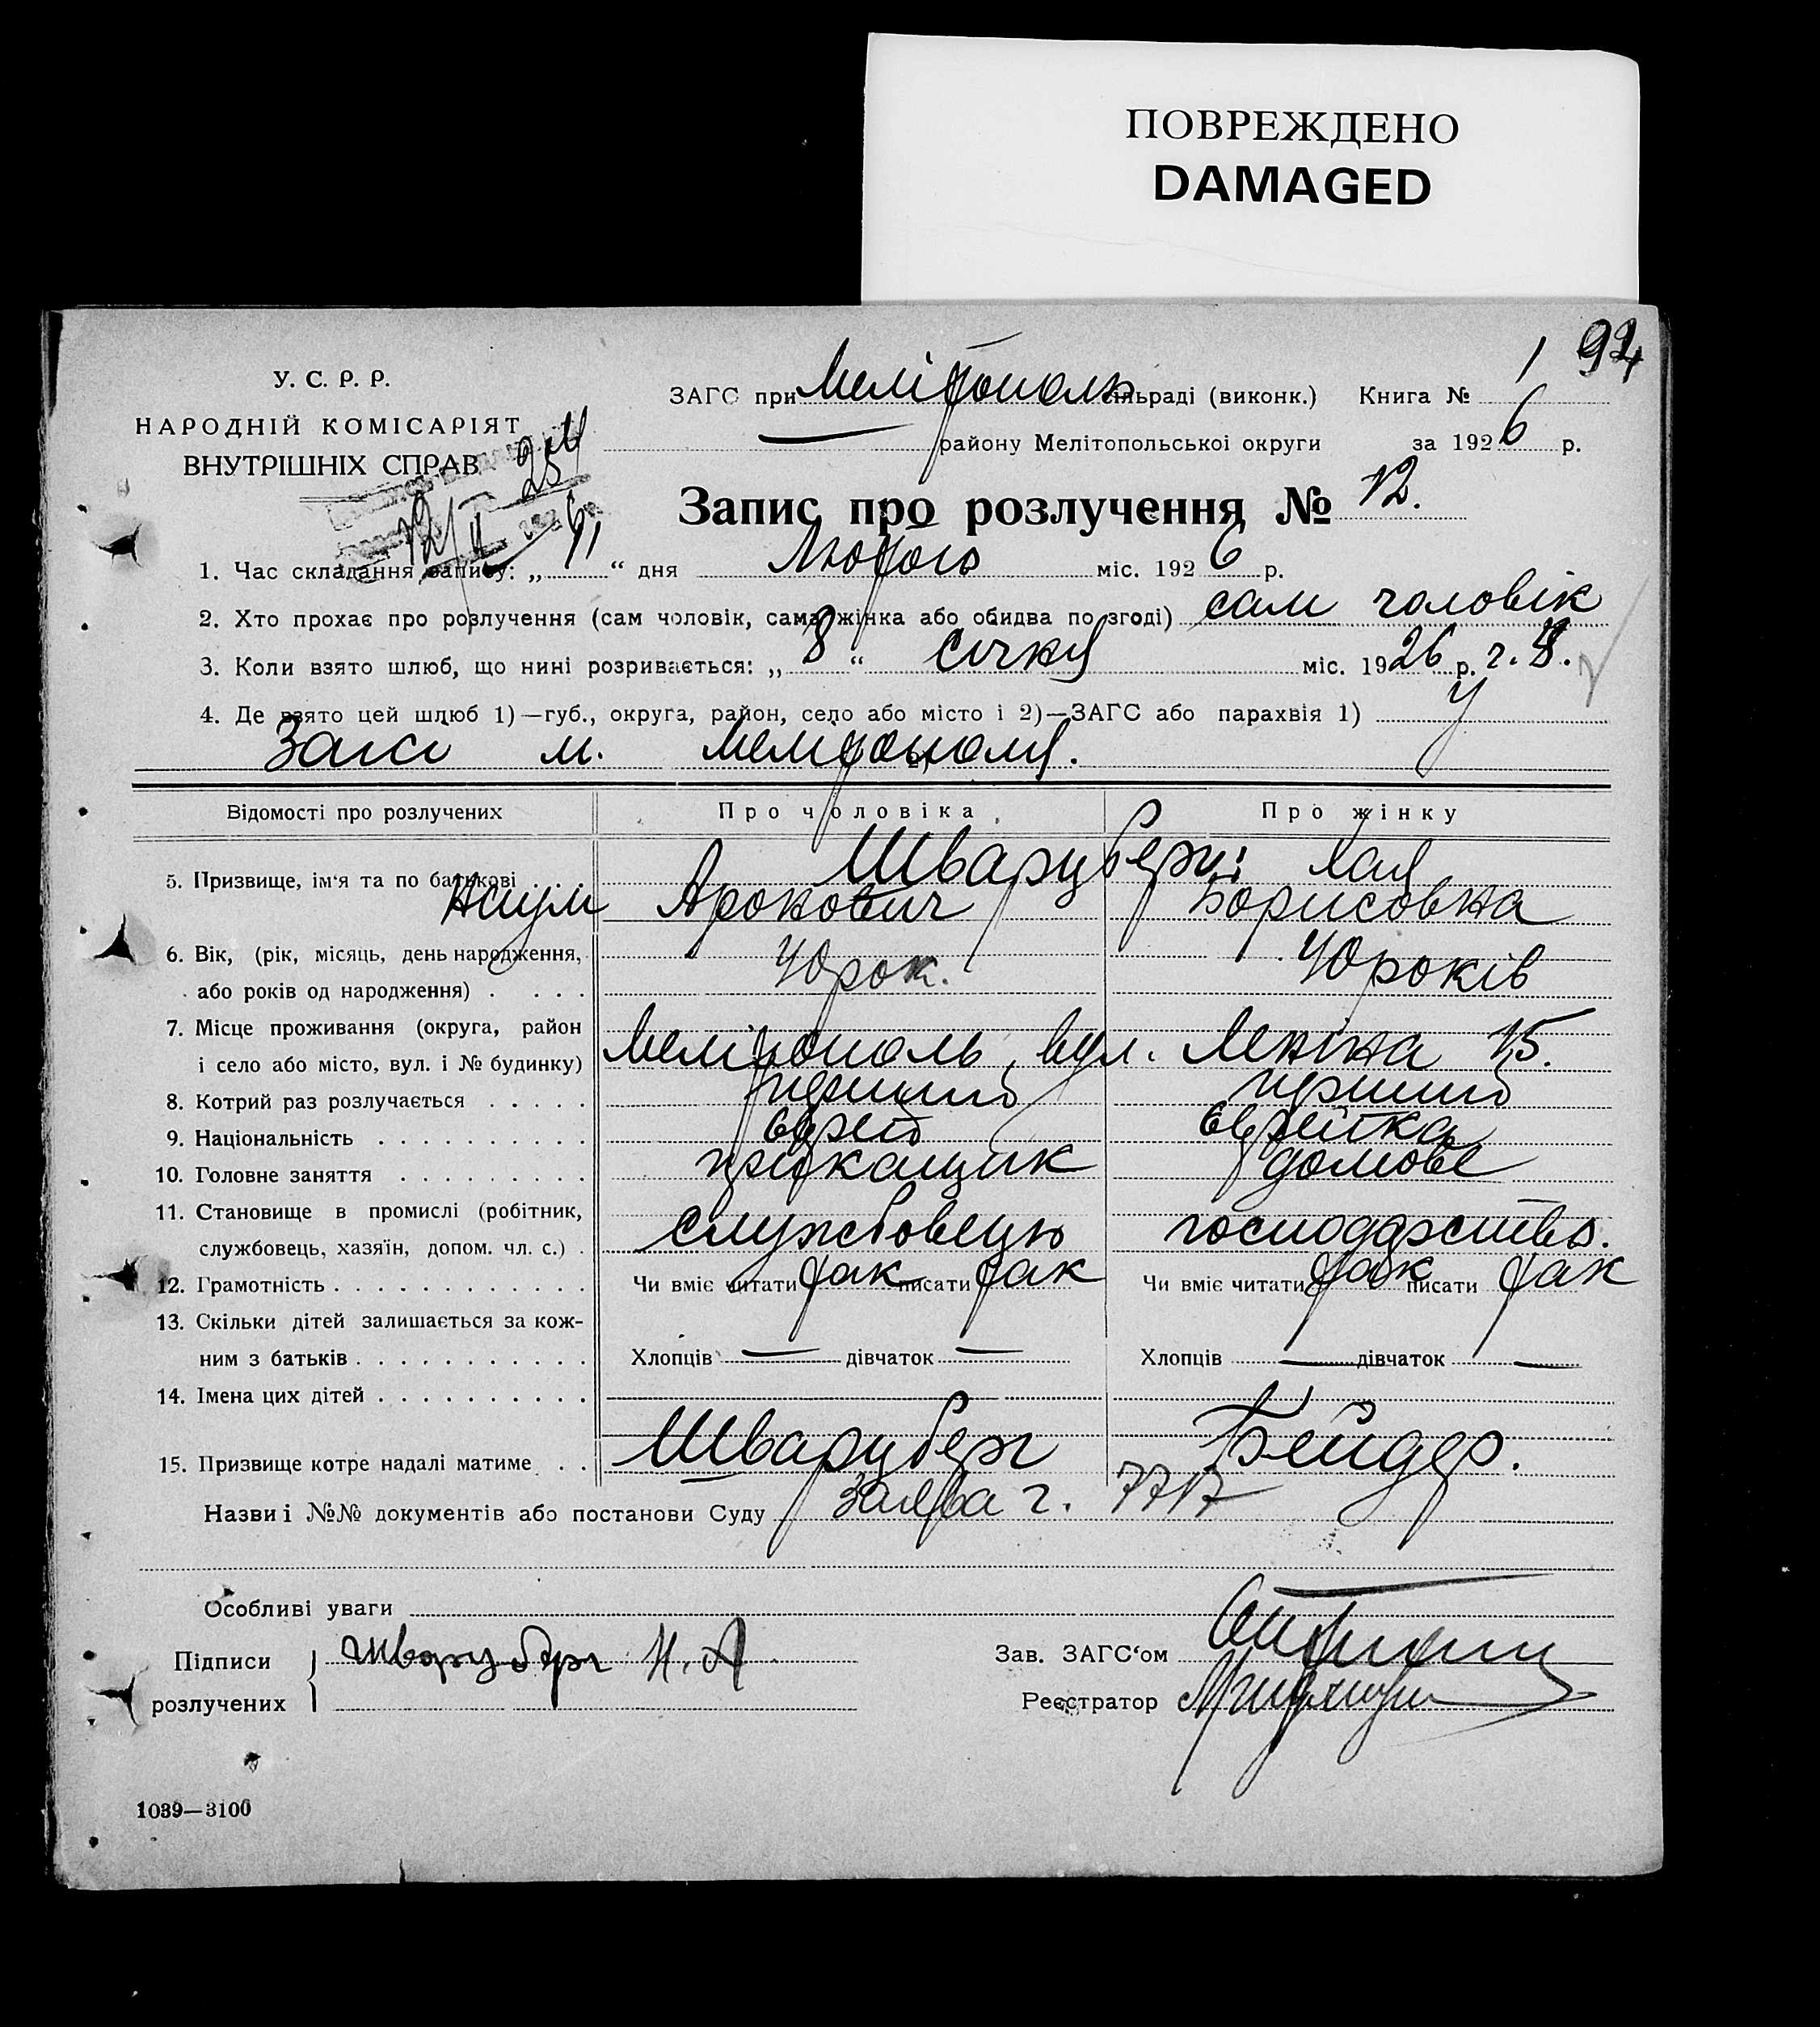 ПОВРЕЖДЕНО
DAMAGED
1 94
У. С. Р. Р.
НАРОДНІЙ КОМІСАРІЯТ
ВНУТРІШНІХ СПРАВ
ЗАГС при Мелітополь сільраді (виконк.) Книга №
— району Мелітопольської округи за 1926 р.
Запис про розлучення № 12.
1. Час складання запису: „11“ дня Лютого міс. 1926 р.
2. Хто прохає про розлучення (сам чоловік, сама жінка або обидва по згоді) сам чоловік
3. Коли взято шлюб, що нині розривається: „8“ січня міс. 1926 р. ч. 8.
4. Де взято цей шлюб 1)—губ., округа, район, село або місто і 2)—ЗАГС або парахвія 1) У
Загсі м. Мелітополя.
Відомості про розлучених Про чоловіка Про жінку
5. Призвище, ім'я та по батькові Шварцберг: Хая
Наум Аронович Борисовна
6. Вік, (рік, місяць, день народження, 40 рок. 40 років
або років од народження) . . . .
7. Місце проживання (округа, район
і село або місто, вул. і № будинку) Мелітополь, вул. Леніна 15.
8. Котрий раз розлучається . . . . . перший перший
9. Національність . . . . . . . . . . єврей єврейка
10. Головне заняття . . . . . . . . . прикащик домове
11. Становище в промислі (робітник,
службовець, хазяїн, допом. чл. с.) . службовець господарство.
12. Грамотність . . . . . . . . . . . . Чи вміє читати так писати так Чи вміє читати так писати так
13. Скільки дітей залишається за кож-
ним з батьків . . . . . . . . . . . Хлопців — дівчаток — Хлопців — дівчаток —
14. Імена цих дітей . . . . . . . . . .
15. Призвище котре надалі матиме . . Шварцберг Бейдер.
Назви і №№ документів або постанови Суду Заява ч. 7717
Особливі уваги
Підписи Шварцберг Н. А
розлучених
Зав. ЗАГС'ом
Реєстратор
1039—3100